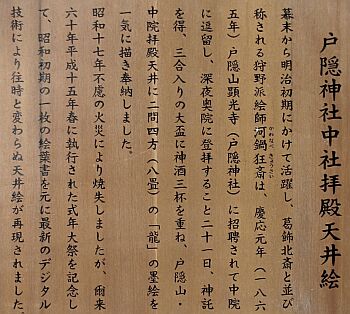 戸隠神社中社拝殿天井絵
幕末から明治初期にかけて活躍し、葛飾北斎と並び
称される狩野派絵師河鍋狂斎は、慶応元年(一八六
かわなべ きょうさい
五年)戸隠山顕光寺(戸隠神社)に招聘されて中院
に逗留し、深夜奥院に登拝すること二十一日、神託
を得、三合入りの大盃に神酒三杯を重ね、戸隠山・
中院拝殿天井に二間四方(八畳)の「龍」の墨絵を
一気に描き奉納しました。
昭和十七年不慮の火災により焼失しましたが、爾来
六十年平成十五年春に執行された式年大祭を記念し
て、昭和初期の一枚の絵葉書を元に最新のデジタル
技術により往時と変わらぬ天井絵が再現されました。